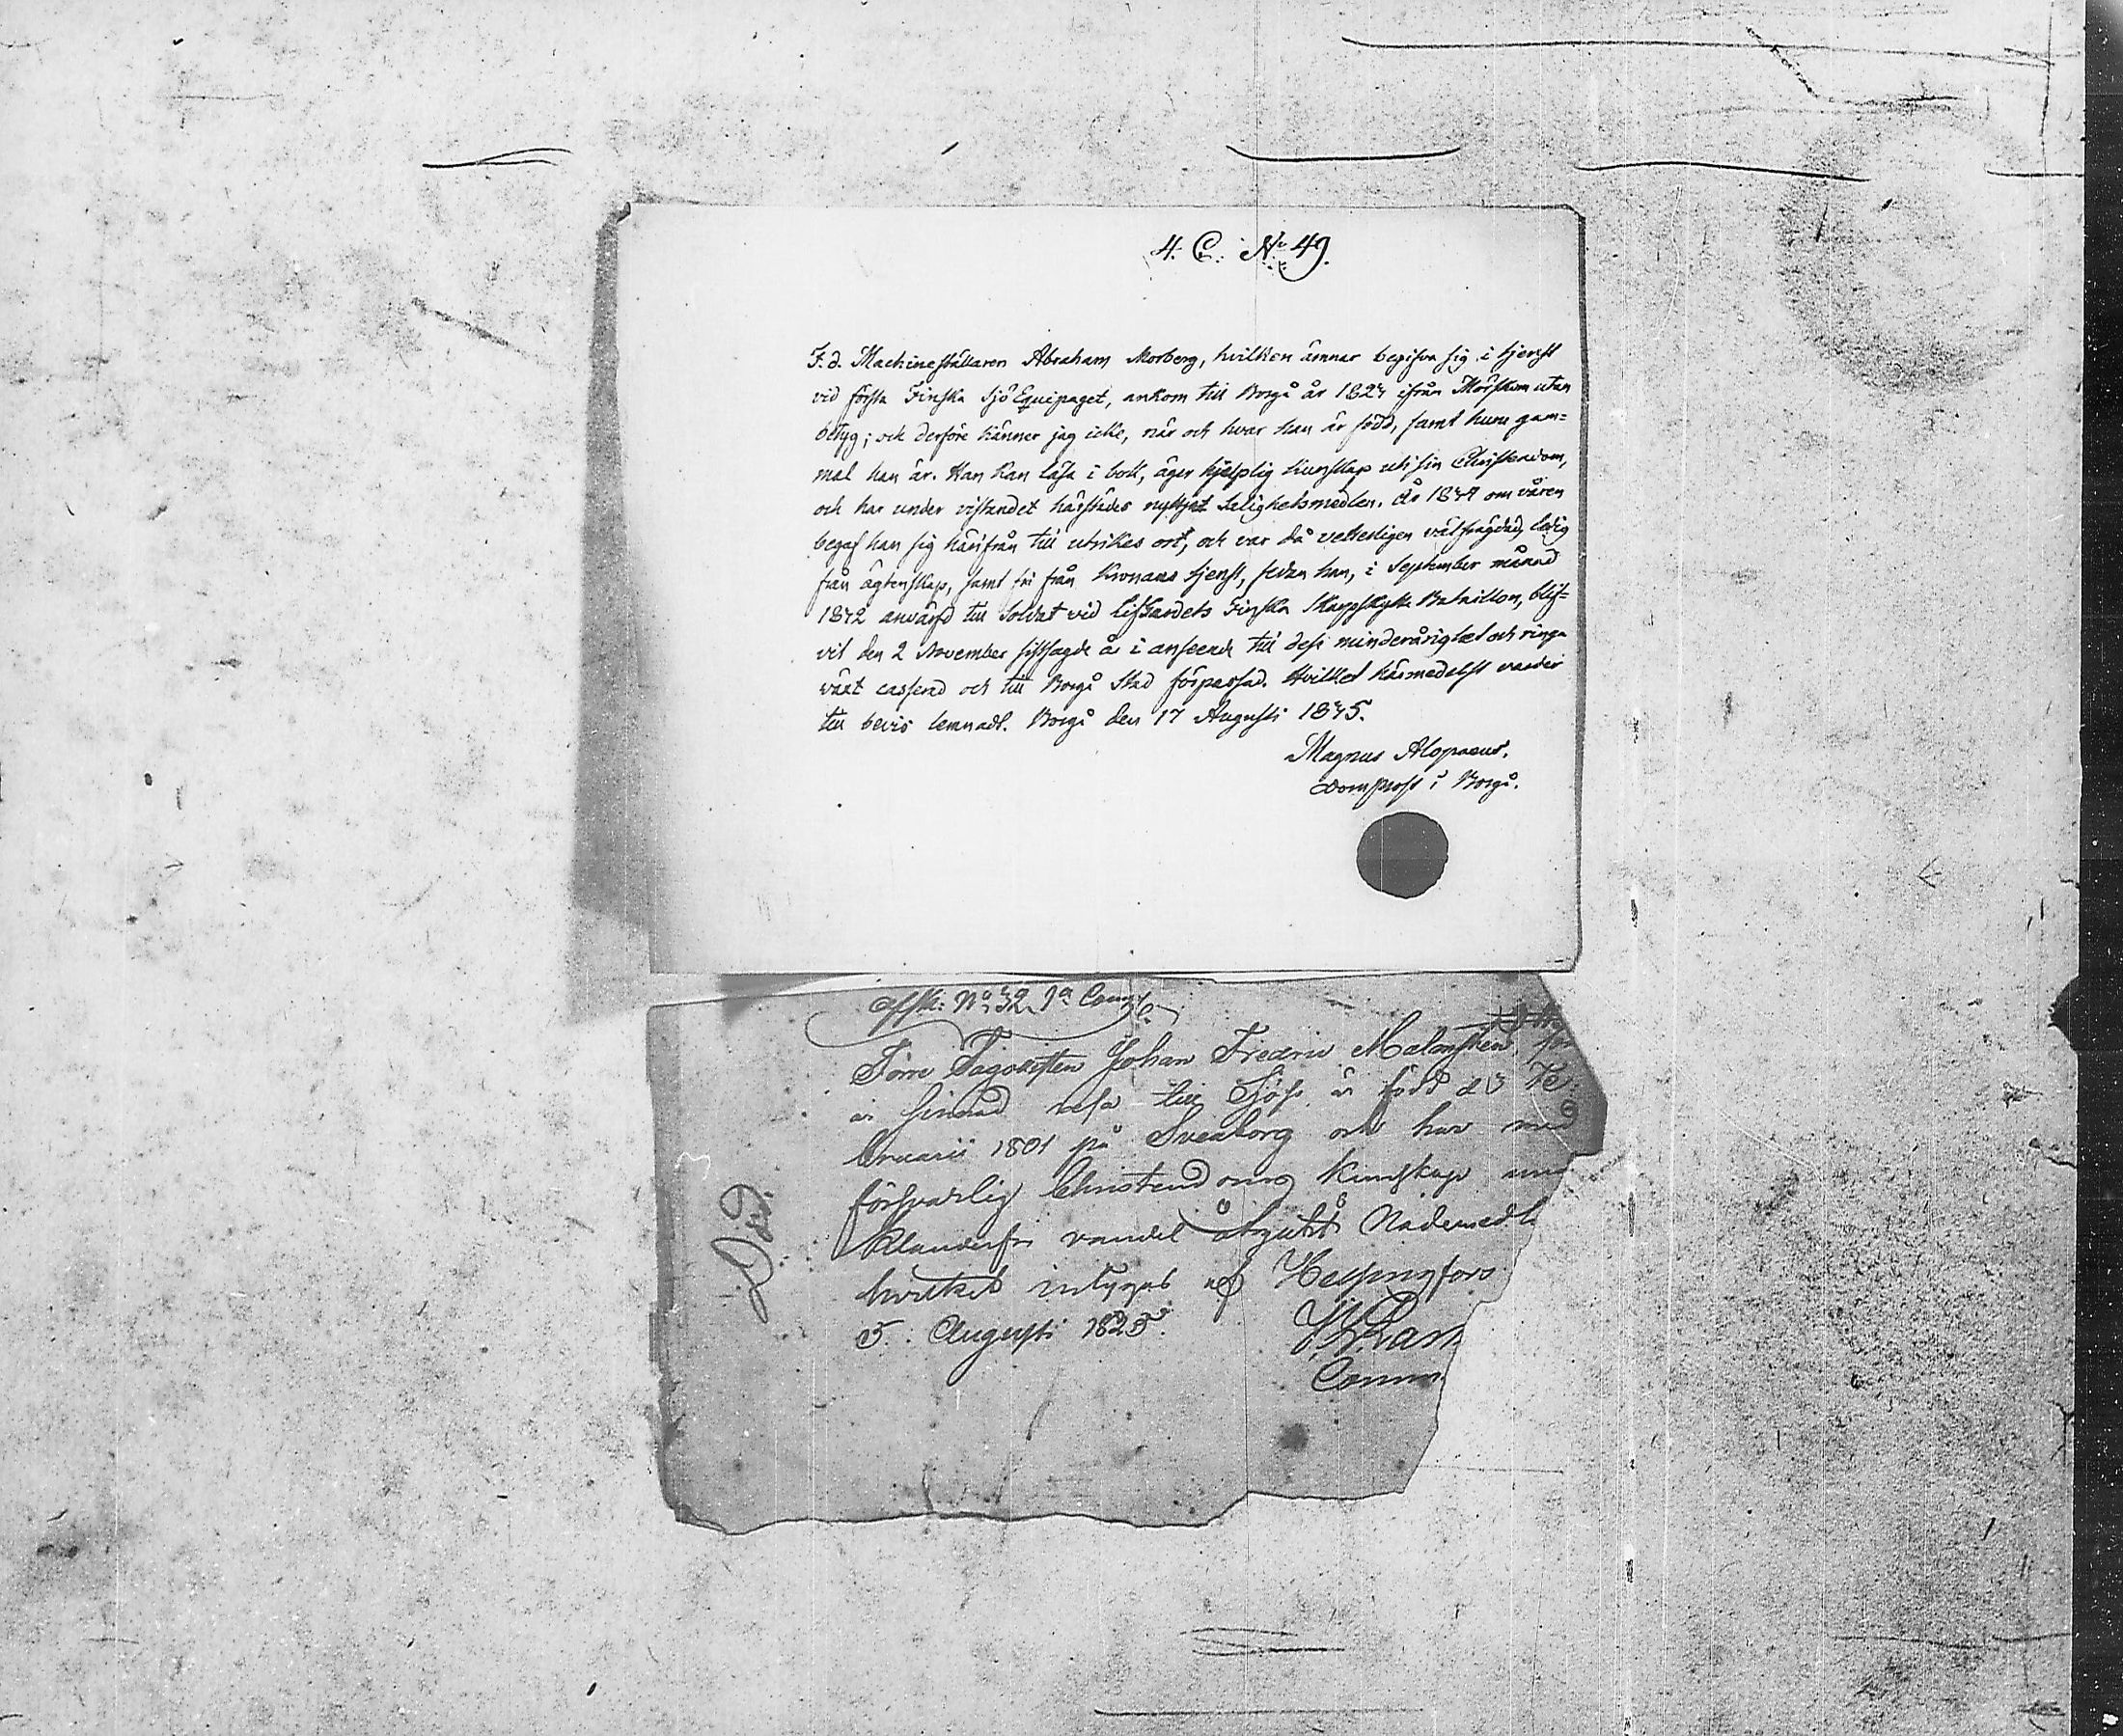 4. C. No 49.
F. d. Machineställaren Abraham Morberg, hvilken ämnar begifva sig i tjenst
vid första Finska Sjö Equipaget, ankom till Borgå år 1827 ifrån Mörskom utan
betyg; och derföre känner jag icke, när och hvar han är född, samt huru gam=
mal han är. Han kan läsa i bok, äger hjelplig kunskap uti sin Christendom,
och har under vistandet härstädes nyttjat Salighetsmedlen. År 1844 om våren
begaf han sig härifrån till utrikes ort, och var då vetterligen välfrägdad, ledig
från ägtenskap, samt fri från Kronans tjenst, sedan han, i September månad
1842 anvärfd till Soldat vid Lifgardets Finska Skarpskytte Bataillon, blif=
vit den 2 November sistsagde år i anseende till dess minderårighet och ringa
växt casserad och till Borgå Stad förpassad. Hvilket härmedelst varder
till bevis lemnadt. Borgå den 17 Augusti 1845.
Magnus Alopaeus.
Domprost i Borgå.
No 32 1a Comp
Johan Fredric Malmsten
är sinnad resa till Sjöss är född d 3 Fe
bruarii 1801 på Sveaborg och har med
försvarlig Christendoms Kunskap
vandel åtnjutit Nådemedl
hvilket intygas af Helsingfors
5. Augusti 1825.
Comm
Död.